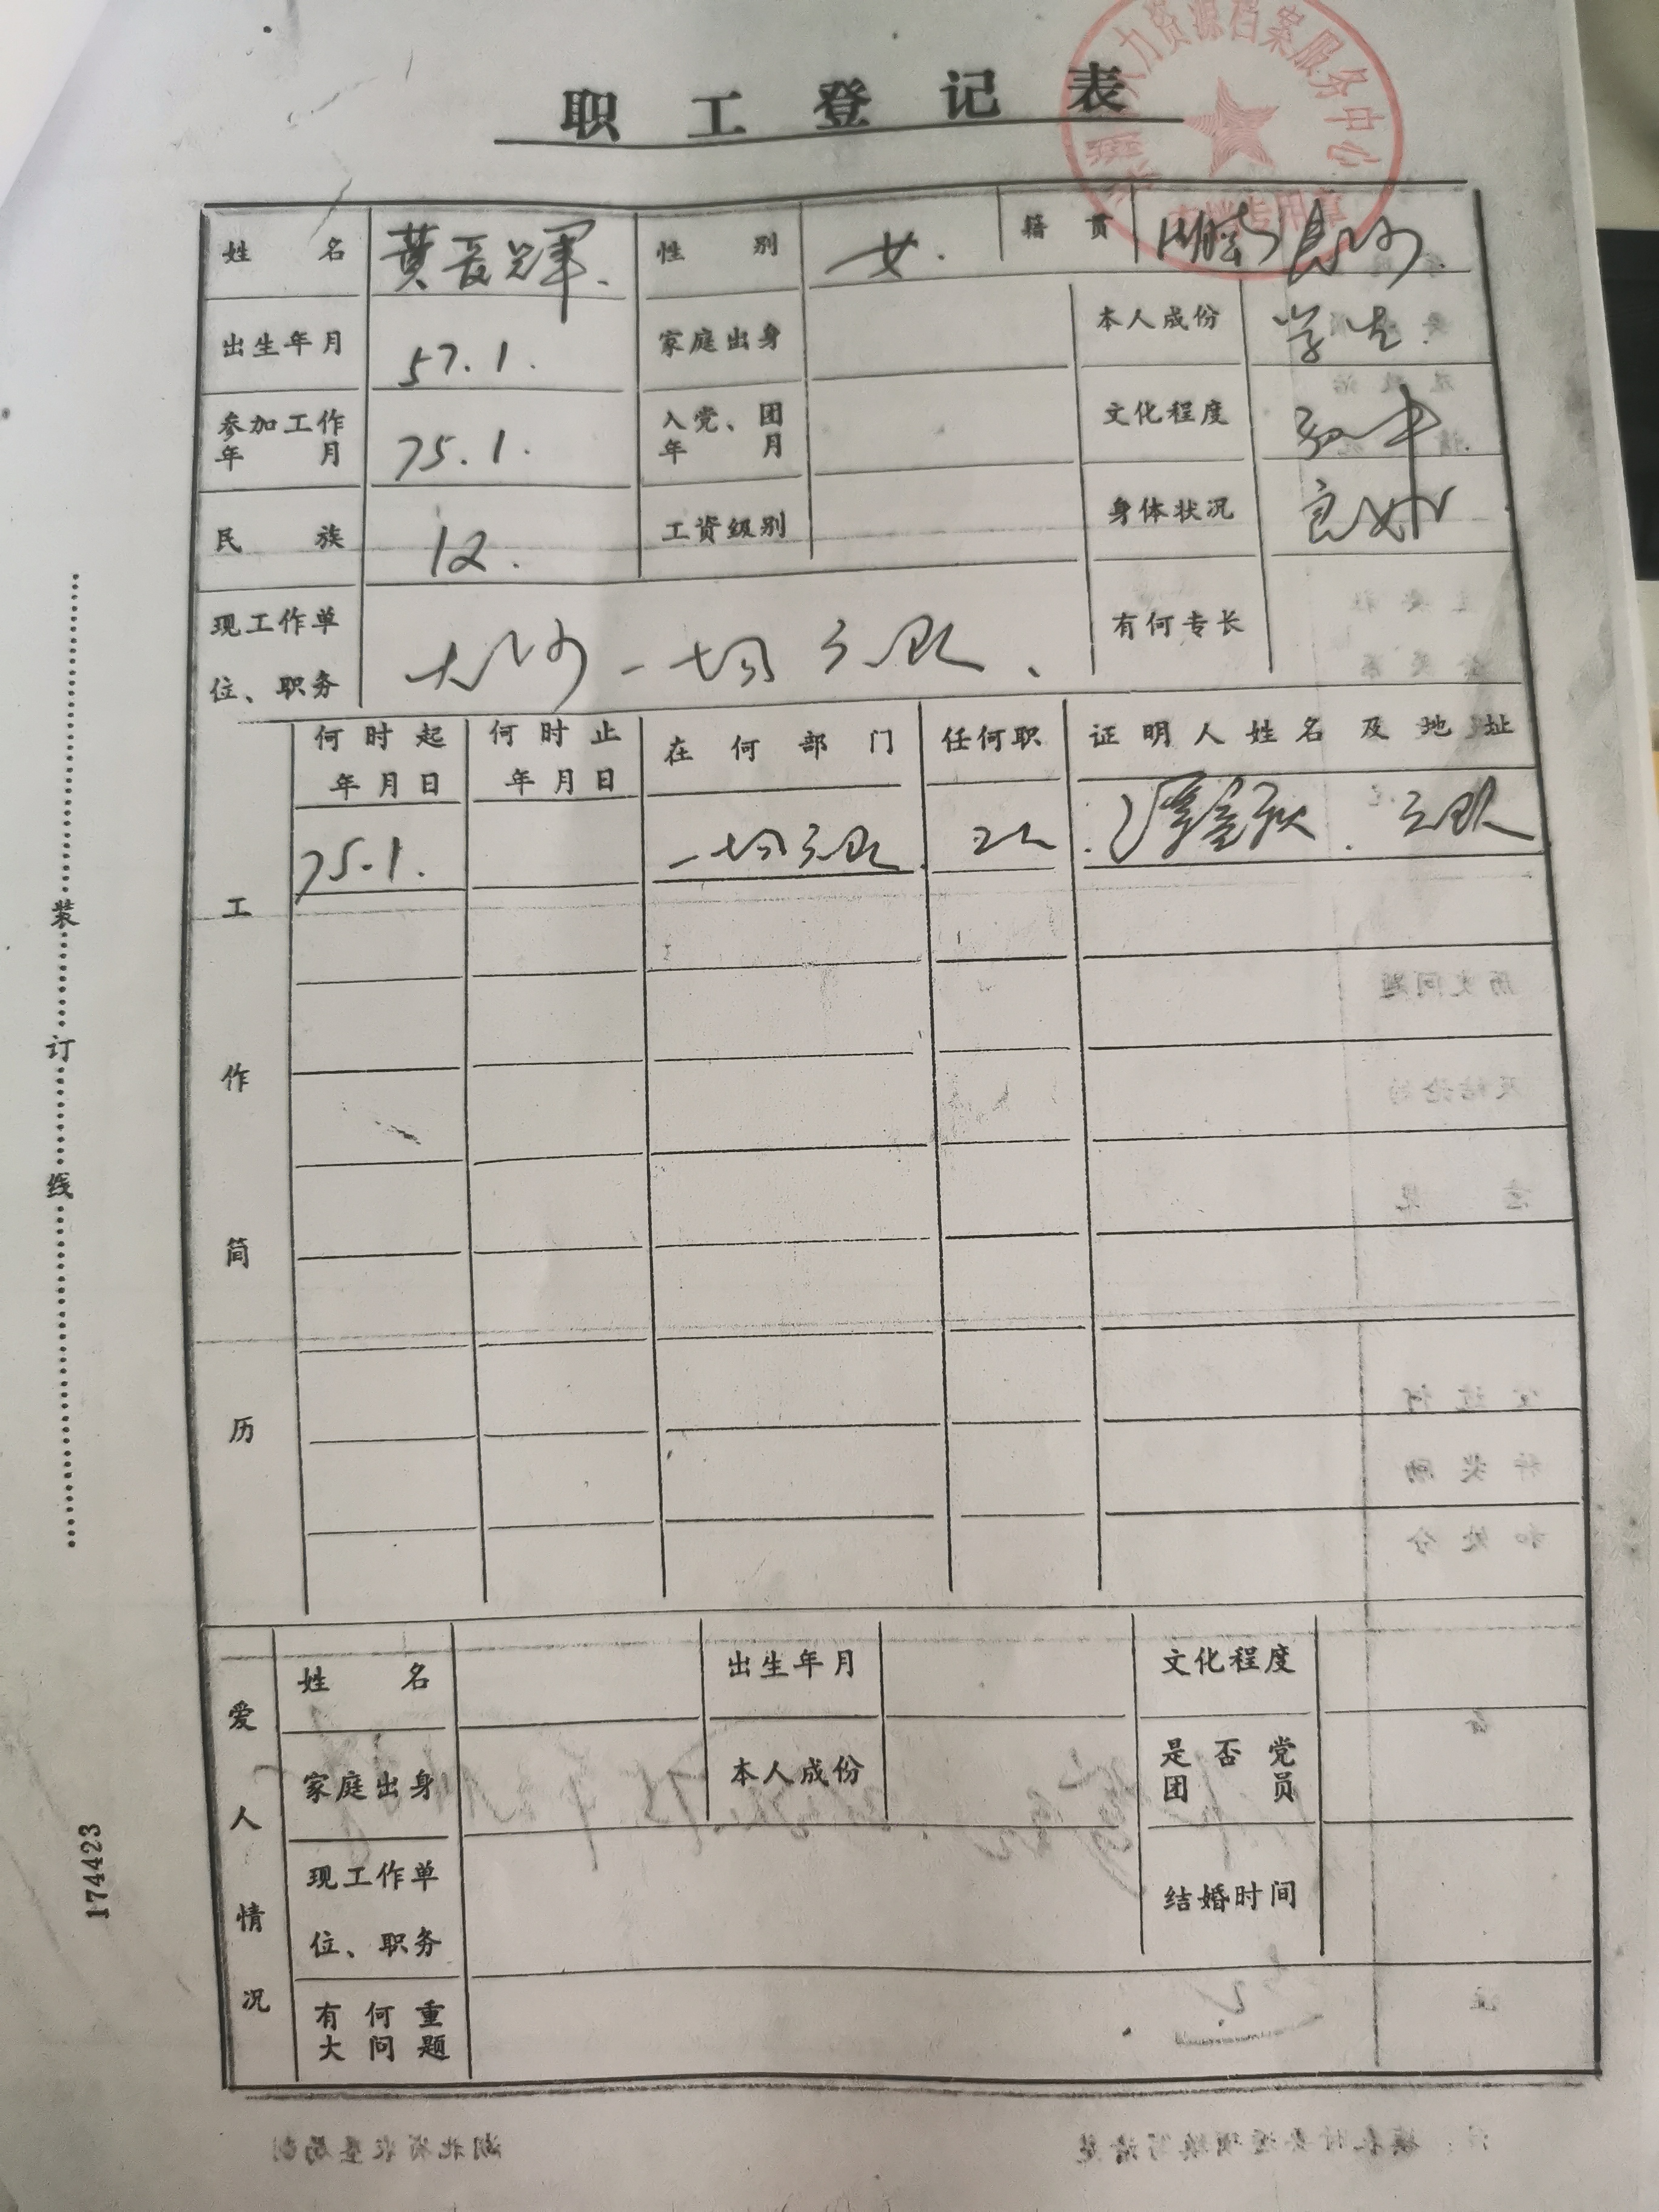 职工登记表
力资源档案服务中心
专用章
姓名 黄爱辉. 性别 女. 籍贯 湖南长沙.
出生年月 57.1. 家庭出身 本人成份 学生
参加工作年月 75.1. 入党、团年月 文化程度 初中
民族 12. 工资级别 身体状况 良好
现工作单位、职务 大沙一切三队、 有何专长
工作简历
何时起年月日 何时止年月日 在何部门 任何职 证明人姓名及地址
75.1. 一切三队 工人 三队
爱人情况
姓名 出生年月 文化程度
家庭出身 本人成份 是否党团员
现工作单位、职务 结婚时间
有何重大问题
装订线
174423
历史问题
及结论的
意见
和处分
湖北省农垦局制